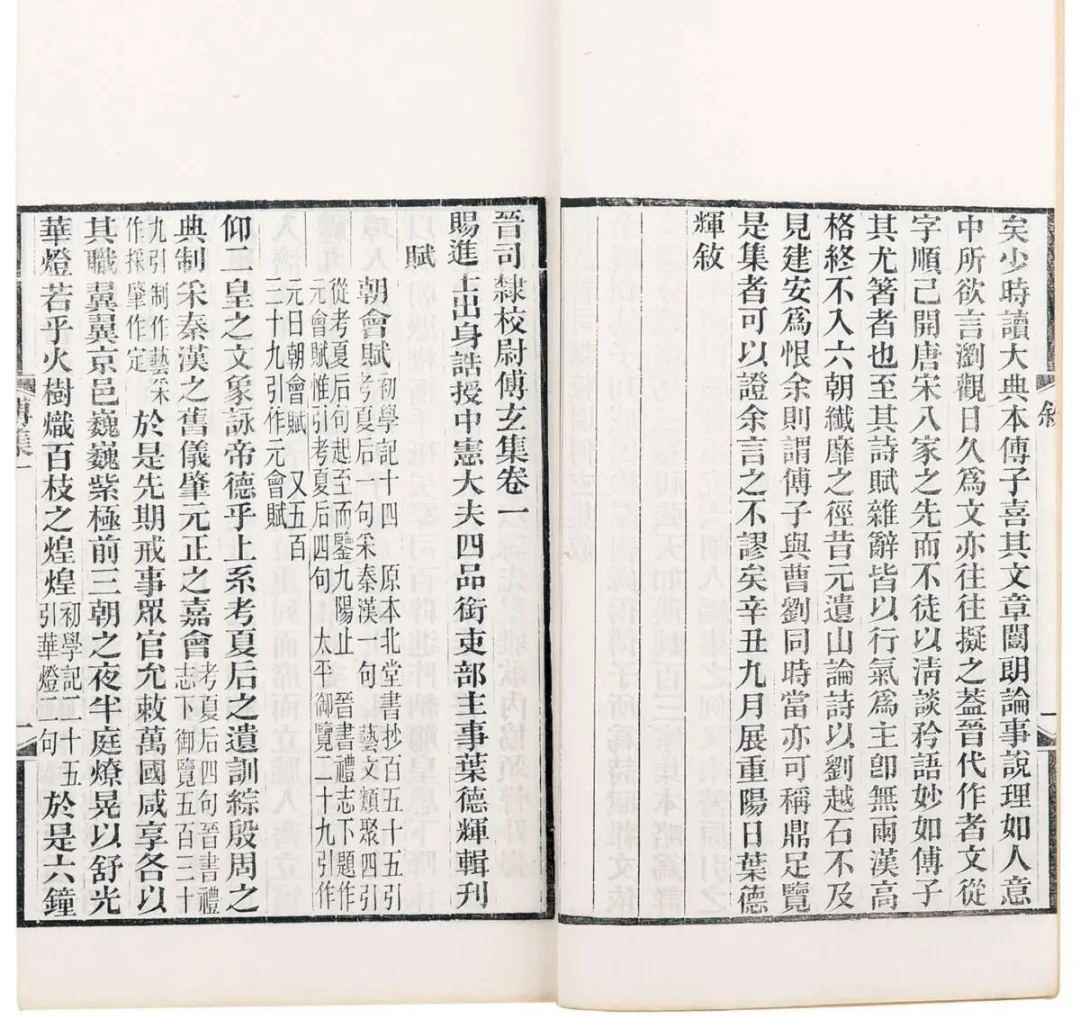 矣少時讀大典本傅子喜其文章闓朗論事說理如人意
中所欲言瀏觀日久爲文亦往往擬之葢晉代作者文從
字順已開唐宋八家之先而不徒以淸談矜語妙如傅子
其尤箸者也至其詩賦雜辭皆以行氣爲主卽無兩漢高
格終不入六朝纖靡之徑昔元遺山論詩以劉越石不及
見建安爲恨余則謂傅子與曹劉同時當亦可稱鼎足覽
是集者可以證余言之不謬矣辛丑九月展重陽日葉德
輝敘
晉司隸校尉傅玄集卷一
賜進士出身誥授中憲大夫四品銜吏部主事葉德輝輯刊
賦
朝會賦初學記十四 原本北堂書抄百五十五引
考夏后一句采秦漢一句 藝文類聚四引
從考夏后句起至而鑒九陽止 晉書禮志下題作
元會賦惟引考夏后四句 太平御覽二十九引作
元日朝會賦 又五百
三十九引作元會賦
仰二皇之文象詠帝德乎上系考夏后之遺訓綜殷周之
典制采秦漢之舊儀肇元正之嘉會考夏后四句晉書禮
志下御覽五百三十
九引制作藝采
作採肇作定於是先期戒事眾官允敕萬國咸享各以
其職翼翼京邑巍巍紫極前三朝之夜半庭燎晃以舒光
華燈若乎火樹熾百枝之煌煌初學記二十五
引華燈二句於是六鐘
傅集一
一
敘
二